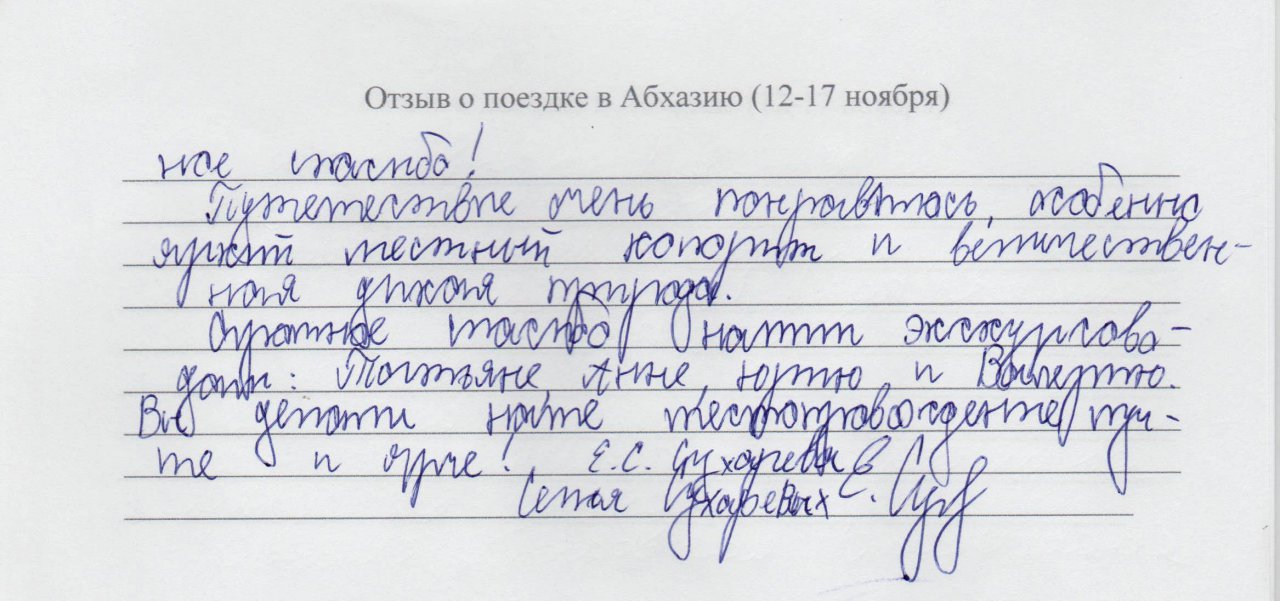 Отзыв о поездке в Абхазию (12-17 ноября)
ное спасибо!
Путешествие очень понравилось, особенно
яркий местный колорит и величествен-
ная дикая природа.
Огромное спасибо нашим экскурсово-
дам: Татьяне, Анне, Юрию и Валерию.
Вы делали наше времяпровождение луч-
ше и ярче! Е.С. Сухарева
Семья Сухаревых